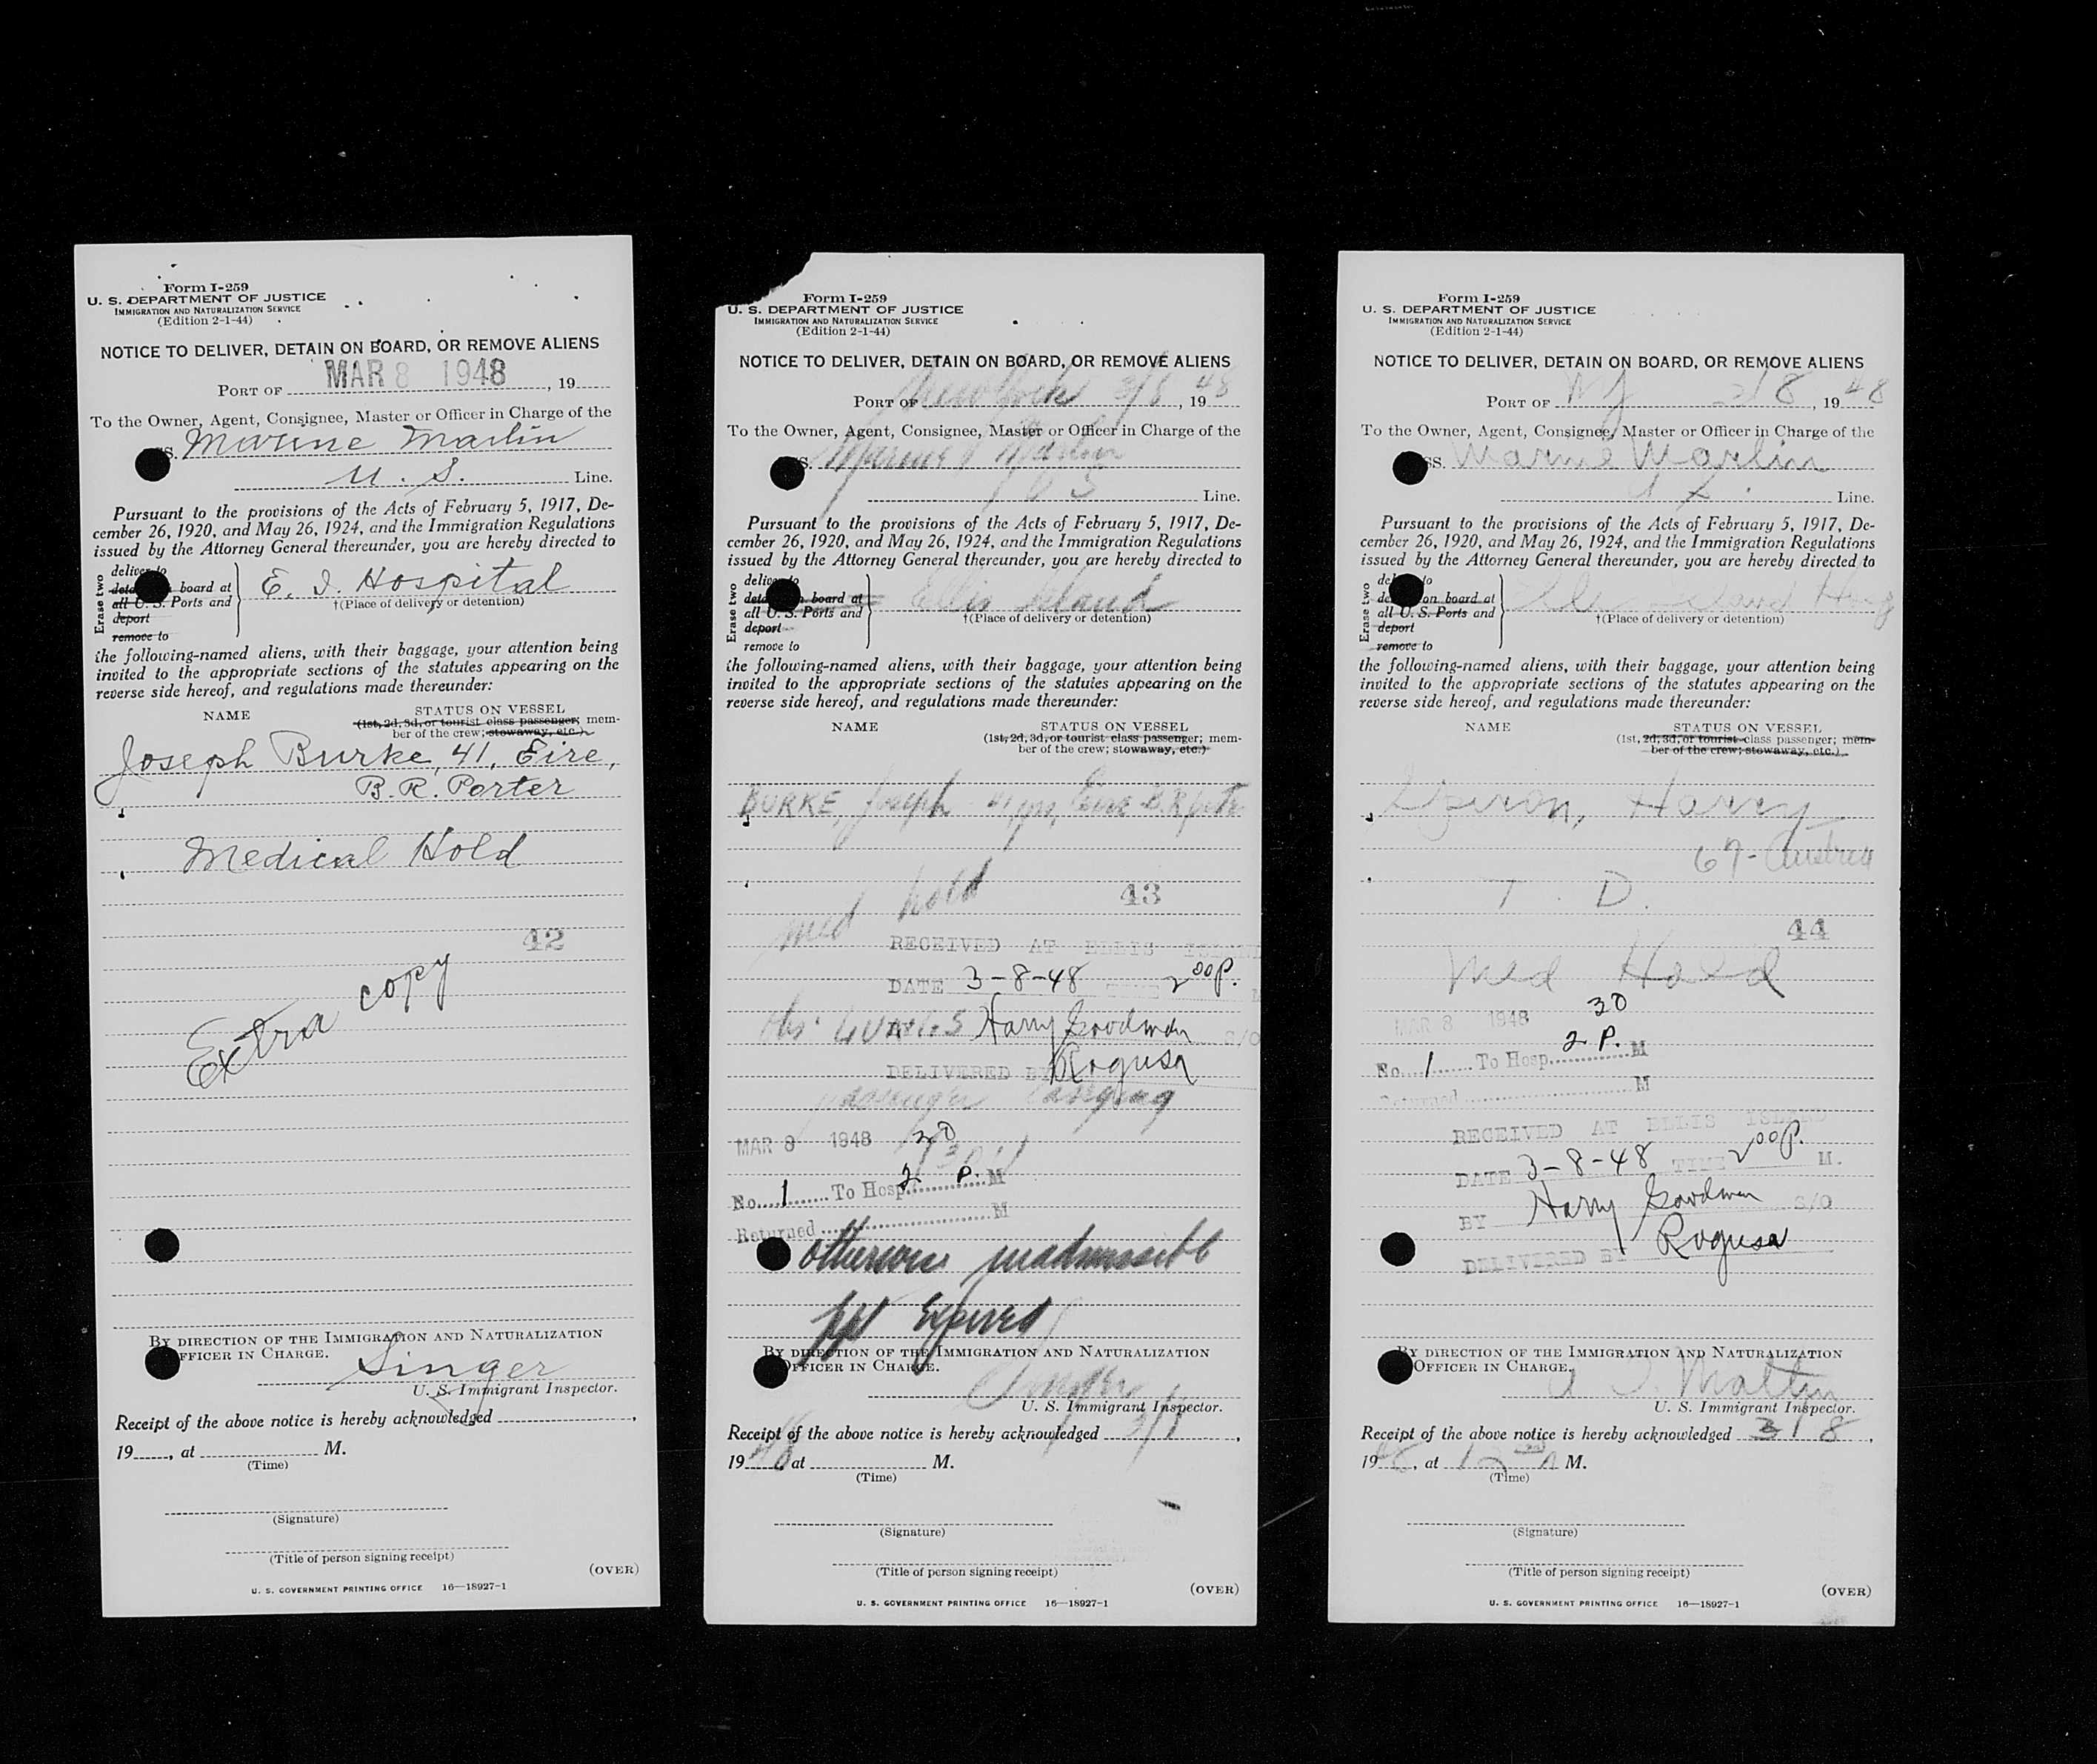 Form I-259
U. S. DEPARTMENT OF JUSTICE
IMMIGRATION AND NATURALIZATION SERVICE
(Edition 2-1-44)
NOTICE TO DELIVER, DETAIN ON BOARD, OR REMOVE ALIENS
PORT OF MAR 8 1948, 19
To the Owner, Agent, Consignee, Master or Officer in Charge of the
SS. Marine Marlin
U. S. Line.
Pursuant to the provisions of the Acts of February 5, 1917, De-
cember 26, 1920, and May 26, 1924, and the Immigration Regulations
issued by the Attorney General thereunder, you are hereby directed to
Erase two
deliver to
board at
all U. S. Ports and
deport
remove to
E. I. Hospital
†(Place of delivery or detention)
the following-named aliens, with their baggage, your attention being
invited to the appropriate sections of the statutes appearing on the
reverse side hereof, and regulations made thereunder:
NAME STATUS ON VESSEL
(1st, 2d, 3d, or tourist class passenger; mem-
ber of the crew; stowaway, etc.)
Joseph Burke, 41, Eire,
B. R. Porter
Medical Hold
42
Extra copy
BY DIRECTION OF THE IMMIGRATION AND NATURALIZATION
OFFICER IN CHARGE.
Singer
U. S. Immigrant Inspector.
Receipt of the above notice is hereby acknowledged ,
19 , at M.
(Time)
(Signature)
(Title of person signing receipt)
(OVER)
U. S. GOVERNMENT PRINTING OFFICE 16—18927-1
Form I-259
U. S. DEPARTMENT OF JUSTICE
IMMIGRATION AND NATURALIZATION SERVICE
(Edition 2-1-44)
NOTICE TO DELIVER, DETAIN ON BOARD, OR REMOVE ALIENS
PORT OF New York 3/8, 1948
To the Owner, Agent, Consignee, Master or Officer in Charge of the
S. Marine Marlin
U S Line.
Pursuant to the provisions of the Acts of February 5, 1917, De-
cember 26, 1920, and May 26, 1924, and the Immigration Regulations
issued by the Attorney General thereunder, you are hereby directed to
Erase two
deliver to
board at
all U. S. Ports and
deport
remove to
Ellis Island
†(Place of delivery or detention)
the following-named aliens, with their baggage, your attention being
invited to the appropriate sections of the statutes appearing on the
reverse side hereof, and regulations made thereunder:
NAME STATUS ON VESSEL
(1st, 2d, 3d, or tourist class passenger; mem-
ber of the crew; stowaway, etc.)
BURKE, Joseph 41 yrs, Eire B.R.
med hold
43
RECEIVED AT ELLIS ISLAND
DATE 3-8-48 TIME 2 00 P. M
Harry Goodman S/O
DELIVERED BY Rogusa
passenger
MAR 8 1948 30
No. 1 To Hosp. 2 P. M
Returned M
otherwise inadmissible
expired
BY DIRECTION OF THE IMMIGRATION AND NATURALIZATION
OFFICER IN CHARGE.
U. S. Immigrant Inspector.
Receipt of the above notice is hereby acknowledged 3/8,
1948 at M.
(Time)
(Signature)
(Title of person signing receipt)
(OVER)
U. S. GOVERNMENT PRINTING OFFICE 16—18927-1
Form I-259
U. S. DEPARTMENT OF JUSTICE
IMMIGRATION AND NATURALIZATION SERVICE
(Edition 2-1-44)
NOTICE TO DELIVER, DETAIN ON BOARD, OR REMOVE ALIENS
PORT OF NY 3/8, 1948
To the Owner, Agent, Consignee, Master or Officer in Charge of the
SS. Marine Marlin
Line.
Pursuant to the provisions of the Acts of February 5, 1917, De-
cember 26, 1920, and May 26, 1924, and the Immigration Regulations
issued by the Attorney General thereunder, you are hereby directed to
Erase two
to
on board at
all U. S. Ports and
deport
remove to
†(Place of delivery or detention)
the following-named aliens, with their baggage, your attention being
invited to the appropriate sections of the statutes appearing on the
reverse side hereof, and regulations made thereunder:
NAME STATUS ON VESSEL
(1st, 2d, 3d, or tourist class passenger; mem-
ber of the crew; stowaway, etc.)
Harry
67- Austria
T. D.
44
Med Hold
MAR 8 1948 30
No. 1 To Hosp. 2 P. M
Returned M
RECEIVED AT ELLIS ISLAND
DATE 3-8-48 TIME 2 00 P. M.
BY Harry Goodman S/O
DELIVERED BY Rogusa
BY DIRECTION OF THE IMMIGRATION AND NATURALIZATION
OFFICER IN CHARGE.
U. S. Immigrant Inspector.
Receipt of the above notice is hereby acknowledged 3/8,
1948, at M.
(Time)
(Signature)
(Title of person signing receipt)
(OVER)
U. S. GOVERNMENT PRINTING OFFICE 16—18927-1